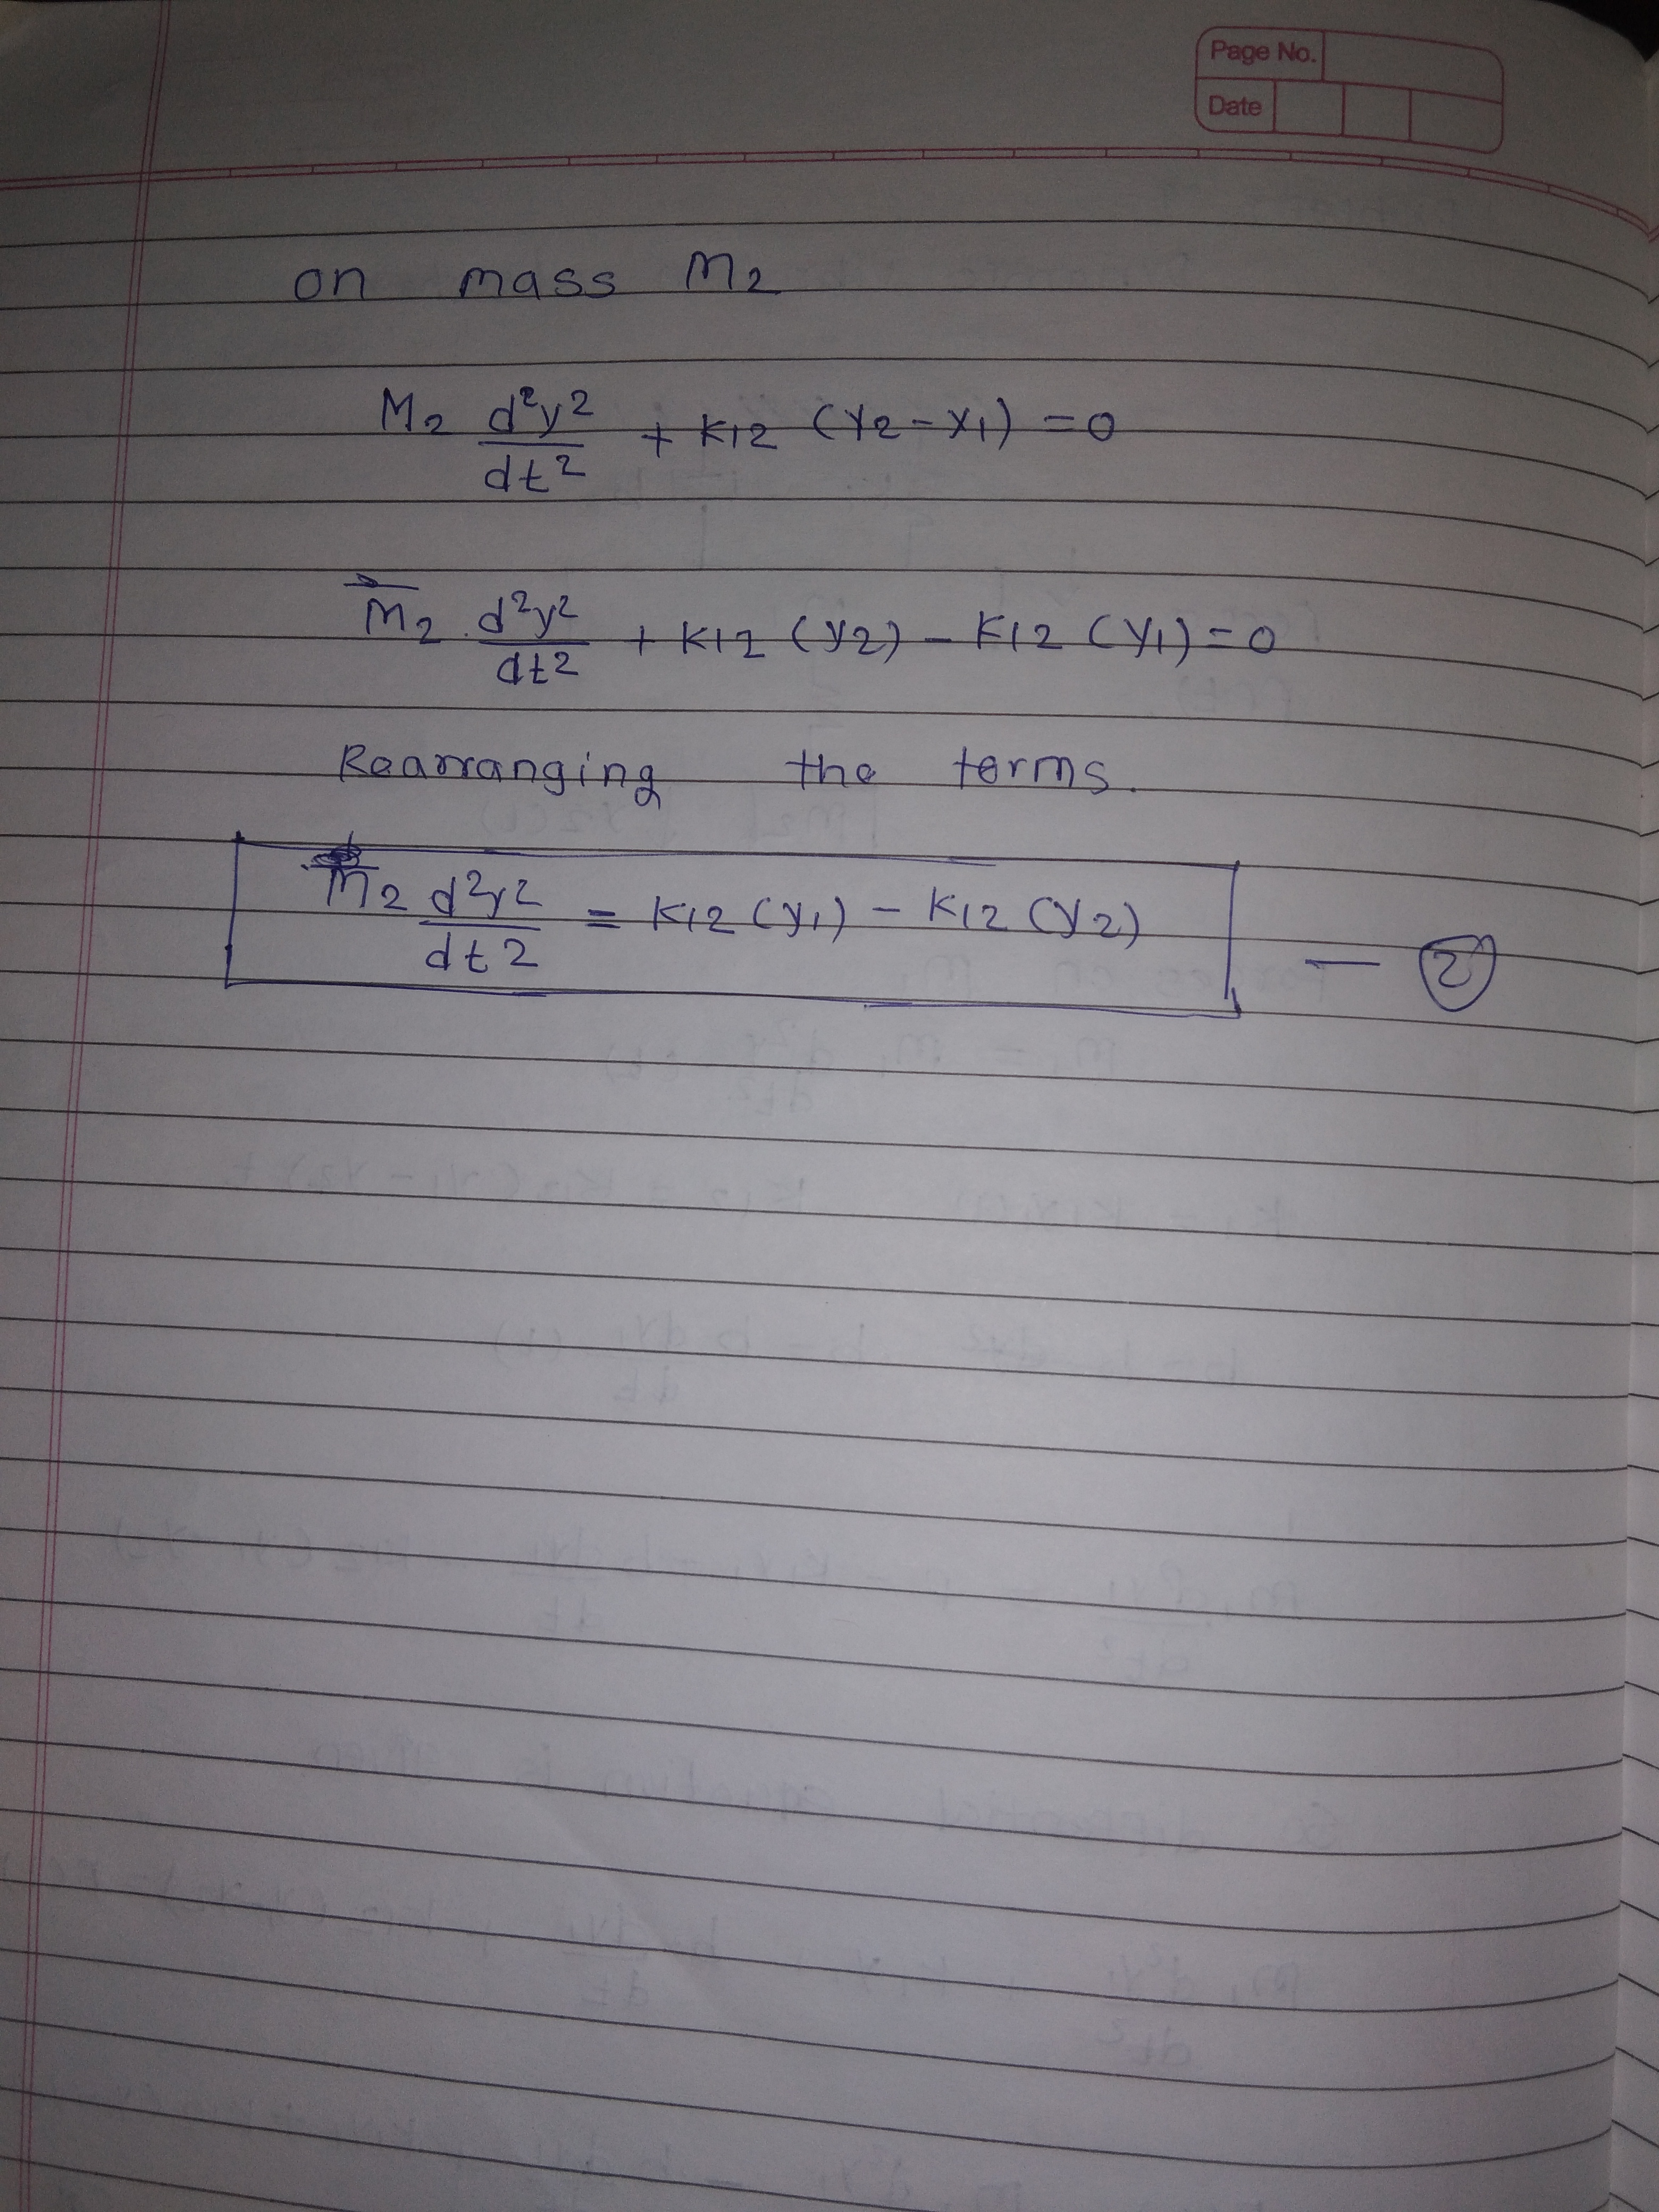 Page No.
Date
on mass M2
M2 d²y2/dt2 + K12 (Y2-Y1) = 0
M2 d²y2/dt2 + K12 (Y2) - K12 (Y1) = 0
Rearranging the terms.
M2 d²y2/dt2 = K12 (Y1) - K12 (Y2) — 2